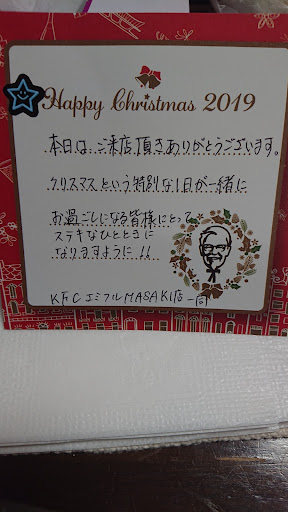 Happy Christmas 2019
本日は、ご来店頂きありがとうございます。
クリスマスという特別な1日が一緒に
お過ごしになる皆様にとって
ステキなひとときに
なりますように!!
KFCエミフルMASAKI店一同